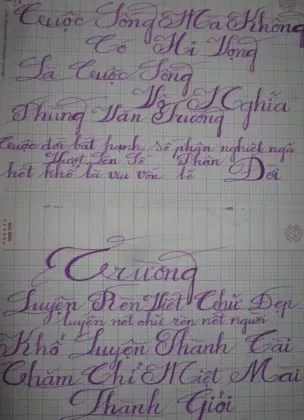 Cuộc Sống Mà Không
Có Hi Vọng
Là Cuộc Sống
Vô Nghĩa
Phùng Văn Trường
Cuộc đời bất hạnh số phận nghiệt ngã
Vượt Lên Số Phận Đời
hết khổ là vui vốn lẽ
Trường
Luyện Rèn Viết Chữ Đẹp
Luyện nét chữ rèn nết người
Khổ Luyện Thành Tài
Chăm Chỉ Miệt Mài
Thành Giỏi